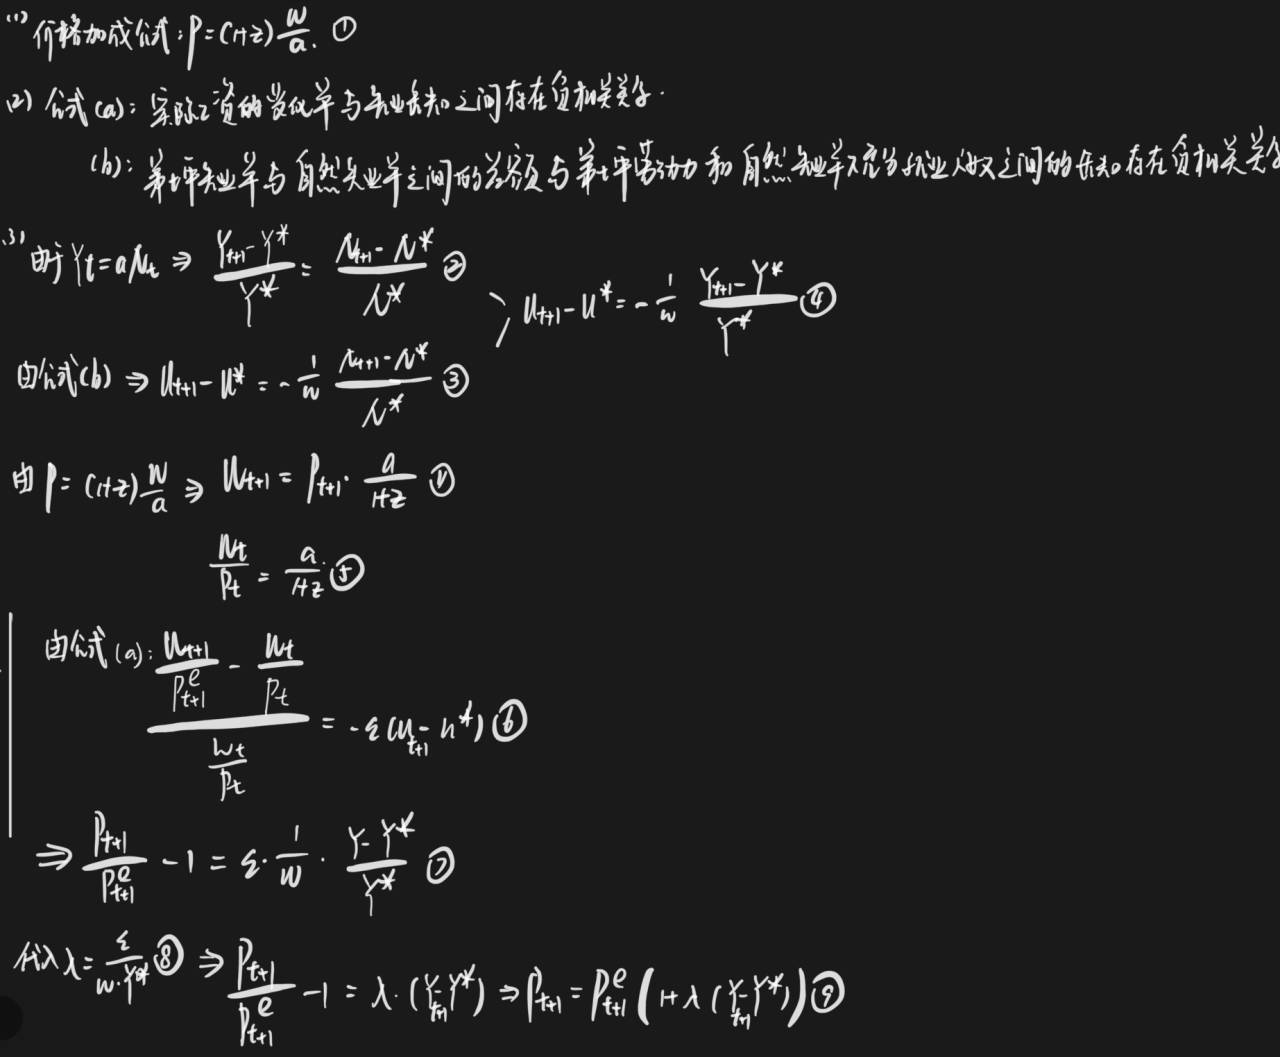 (1) 价格加成公式: P=(1+z) W/a. ①
(2) 公式(a): 实际工资的变化率与失业缺口之间存在负相关关系.
(b): 第t+1期失业率与自然失业率之间的差额与第t+1期劳动力和自然失业率下充分就业人数之间的缺口存在负相关关系
(3) 由于 Yt=aNt ⇒ (Yt+1-Y*)/Y* = (Nt+1-N*)/N* ②
由公式(b) ⇒ Ut+1-U* = -1/w (Nt+1-N*)/N* ③
> Ut+1-U* = -1/w (Yt+1-Y*)/Y* ④
由 P=(1+z) W/a ⇒ Wt+1 = Pt+1· a/(1+z) ①
Wt/Pt = a/(1+z) ⑤
由公式(a): (Wt+1/P^e t+1 - Wt/Pt)/(Wt/Pt) = -ε(Ut+1-u*) ⑥
⇒ Pt+1/P^e t+1 -1 = ε· 1/w · (Y-Y*)/Y* ⑦
代入λ= ε/(w·Y*) ⑧ ⇒ Pt+1/P^e t+1 -1 = λ·(Yt+1-Y*) ⇒ Pt+1 = P^e t+1 (1+λ(Yt+1-Y*)) ⑨